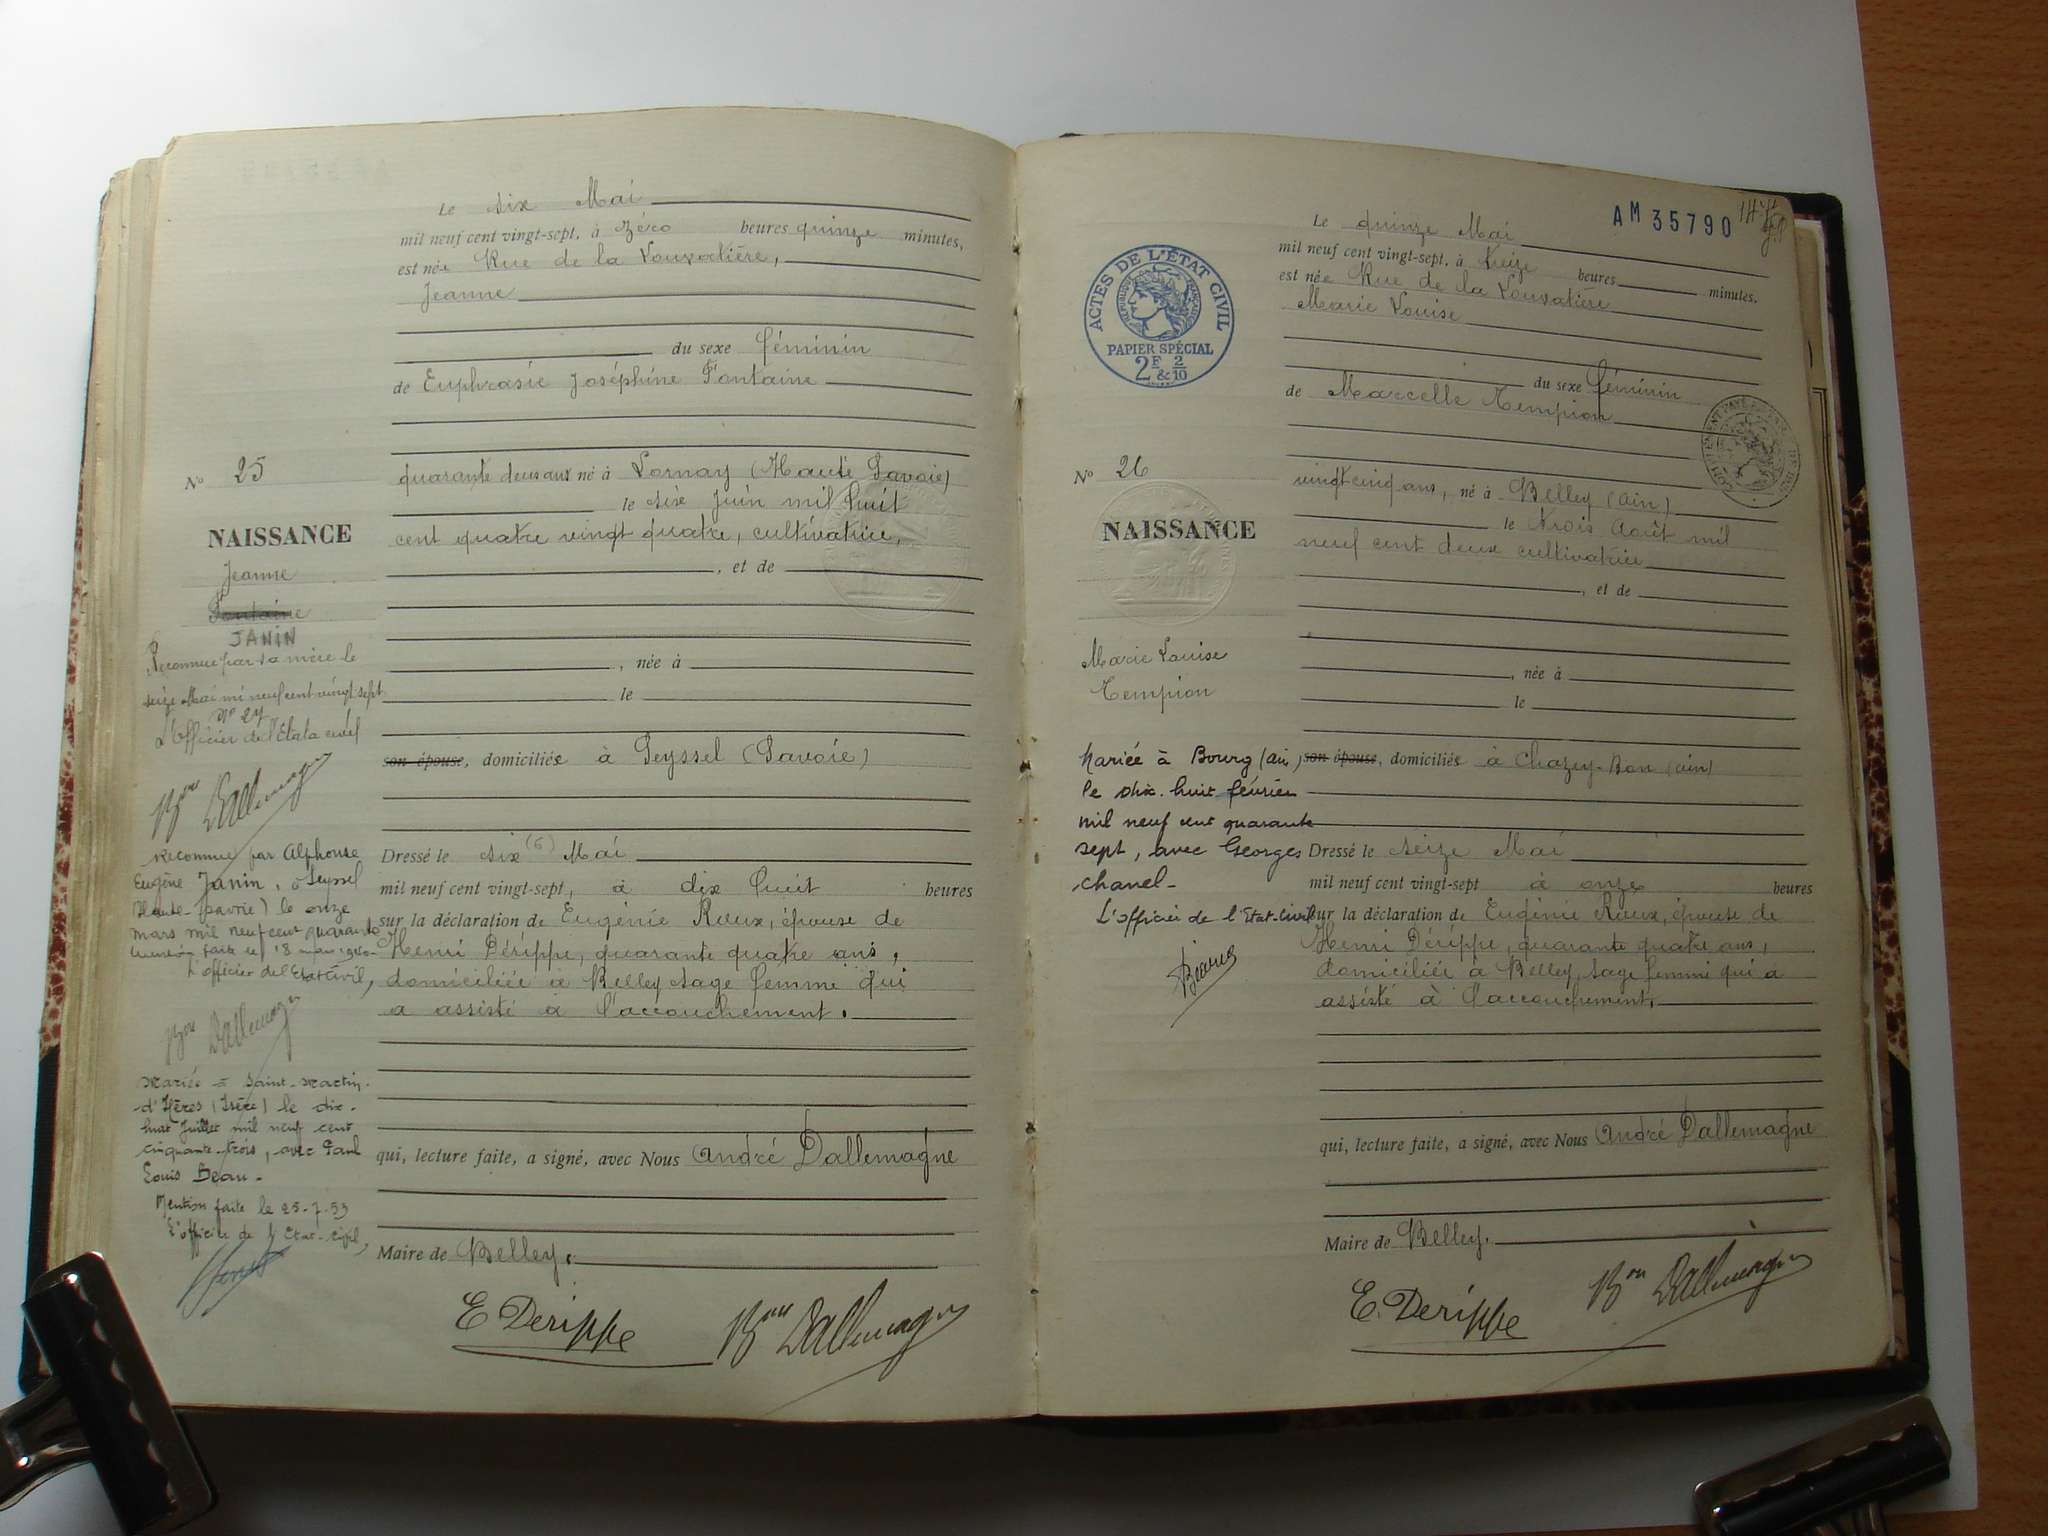 Le six Mai
mil neuf cent vingt-sept, à Zéro heures quinze minutes,
est née Rue de la Louvatière,
Jeanne
du sexe féminin
de Euphrasie Joséphine Fontaine
N° 25
quarante deux ans né à Lornay (Haute Savoie)
le six juin mil huit
NAISSANCE
cent quatre vingt quatre, cultivatrice,
, et de
Jeanne
Fontaine
JANIN
Reconnue par sa mère le
seize Mai mil neuf cent vingt sept
N° 27
L'Officier de l'Etat civil
Bon Dallemagne
, née à
le
son épouse, domiciliés à Seyssel (Savoie)
Reconnue par Alphonse
Eugène Janin, à Seyssel
Haute-Savoie) le onze
mars mil neuf cent quarante
mention faite le 18 mars 1940
L'officier de l'Etat Civil,
Bon Dallemagne
Dressé le six (6) Mai
mil neuf cent vingt-sept, à dix huit heures
sur la déclaration de Eugénie Rieux, épouse de
Henri Dérippe, quarante quatre ans,
domiciliée à Belley sage femme qui
a assisté à l'accouchement.
Mariée à Saint-Martin-
d'Hères (Isère) le dix-
huit Juillet mil neuf cent
cinquante-trois, avec Paul
Louis Beau-
Mention faite le 25-7-53
L'officier de l'Etat-civil,
qui, lecture faite, a signé, avec Nous André Dallemagne
Maire de Belley.
E Derippe Bon Dallemagne
AM 35790
Le quinze Mai
mil neuf cent vingt-sept, à treize heures minutes.
est née Rue de la Louvatière
Marie Louise
ACTES DE L'ÉTAT CIVIL
RÉPUBLIQUE FRANÇAISE
PAPIER SPÉCIAL
2F & 2/10
du sexe féminin
de Marcelle Tempion
N° 26
vingt cinq ans, né à Belley (Ain)
le trois Août mil
NAISSANCE
neuf cent deux cultivatrice
, et de
Marie Louise
Tempion
, née à
le
son épouse, domiciliés à Chazey-Bon (ain)
Mariée à Bourg (ain)
le dix-huit février
mil neuf cent quarante
sept, avec Georges
chanel-
L'officier de l'Etat-Civil
Dressé le seize Mai
mil neuf cent vingt-sept à onze heures
sur la déclaration de Eugénie Rieux, épouse de
Henri Dérippe, quarante quatre ans,
domiciliée à Belley, sage femme qui a
assisté à l'accouchement.
qui, lecture faite, a signé, avec Nous André Dallemagne
Maire de Belley.
E. Derippe Bon Dallemagne